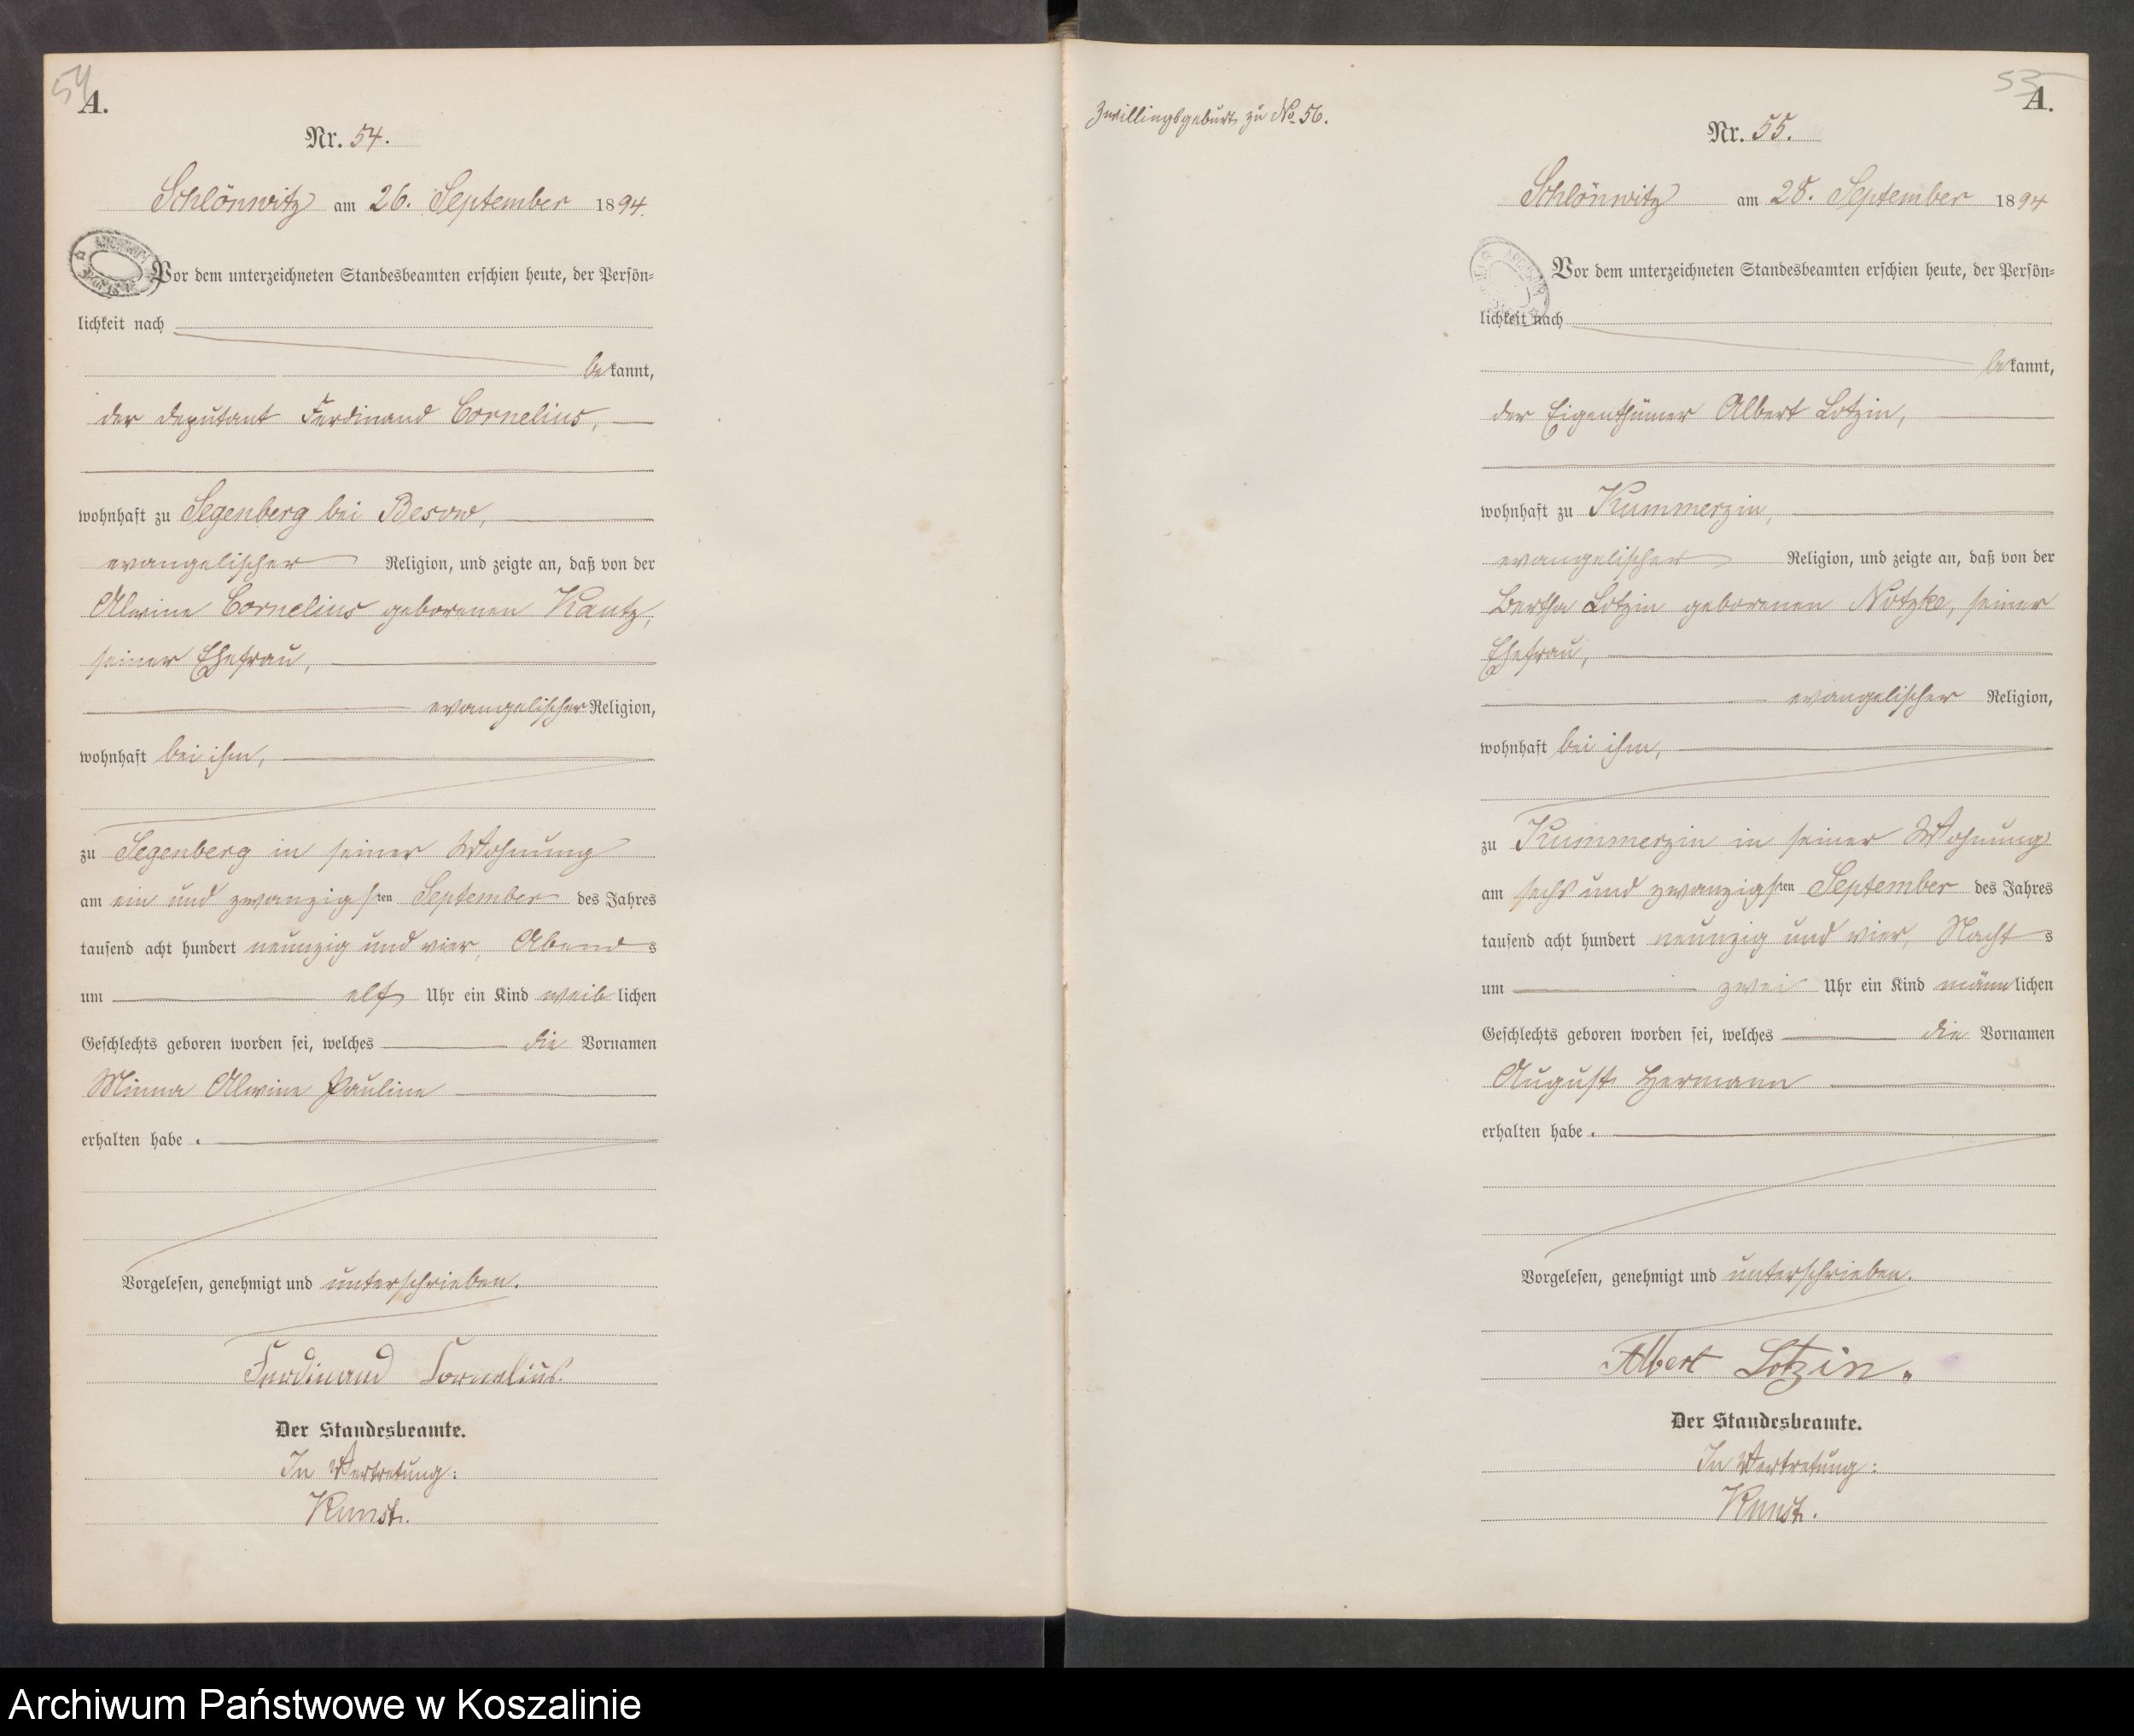 54
A.
Nr. 54.
Schlönwitz am 26. September 1894.
Vor dem unterzeichneten Standesbeamten erschien heute, der Persön=
lichkeit nach
bekannt,
der Deputant Ferdinand Cornelius,
wohnhaft zu Segenberg bei Besow,
evangelischer Religion, und zeigte an, daß von der
Alwine Cornelius geborenen Kautz,
seiner Ehefrau,
evangelischer Religion,
wohnhaft bei ihm,
zu Segenberg in seiner Wohnung
am ein und zwanzigsten September des Jahres
tausend acht hundert neunzig und vier, Abends
um elf Uhr ein Kind weiblichen
Geschlechts geboren worden sei, welches die Vornamen
Minna Alwine Pauline
erhalten habe.
Vorgelesen, genehmigt und unterschrieben.
Ferdinand Cornelius.
Der Standesbeamte.
In Vertretung:
Kunst.
Zwillingsgeburt zu No. 56.
55
A.
Nr. 55.
Schlönwitz am 28. September 1894
Vor dem unterzeichneten Standesbeamten erschien heute, der Persön=
lichkeit nach
bekannt,
der Eigenthümer Albert Lotzin,
wohnhaft zu Kummerzin,
evangelischer Religion, und zeigte an, daß von der
Bertha Lotzin geborenen Notzke, seiner
Ehefrau,
evangelischer Religion,
wohnhaft bei ihm,
zu Kummerzin in seiner Wohnung
am sechs und zwanzigsten September des Jahres
tausend acht hundert neunzig und vier, Nachts
um zwei Uhr ein Kind männlichen
Geschlechts geboren worden sei, welches die Vornamen
August Hermann
erhalten habe.
Vorgelesen, genehmigt und unterschrieben.
Albert Lotzin.
Der Standesbeamte.
In Vertretung:
Kunst.
Archiwum Państwowe w Koszalinie